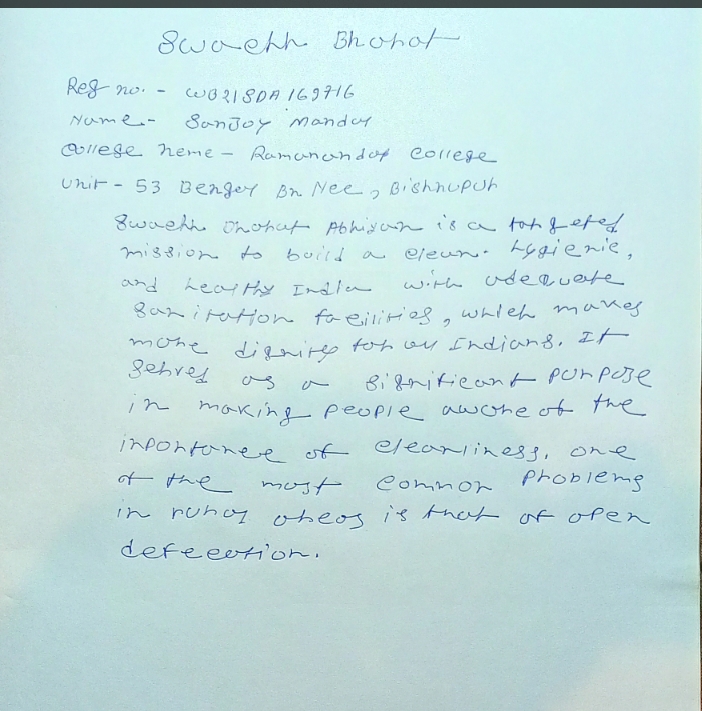 Swachh Bharat
Reg no. - WB21SDA169716
Name - Sanjoy Mandal
College neme - Ramananda College
Unit - 53 Bengal Bn Ncc, Bishnupur
Swachh Bharat Abhiyan is a targeted
mission to build a clean. hygienic,
and healthy India with adequate
Sanitation facilities, which makes
more dignity for all Indians. It
Serves as a significant purpose
in making people aware of the
inportance of cleanliness, one
of the most common problems
in rural areas is that of open
defecation.